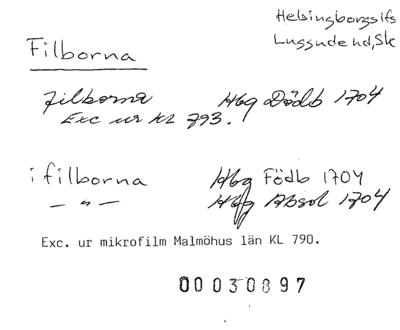 Helsingborgs lfs
Luggude hd, Sk
Filborna
Filborna Hbg Dödb 1704
Exc ur KL 793.
i filborna Hbg Födb 1704
— " — Hbg Absol 1704
Exc. ur mikrofilm Malmöhus län KL 790.
00030897